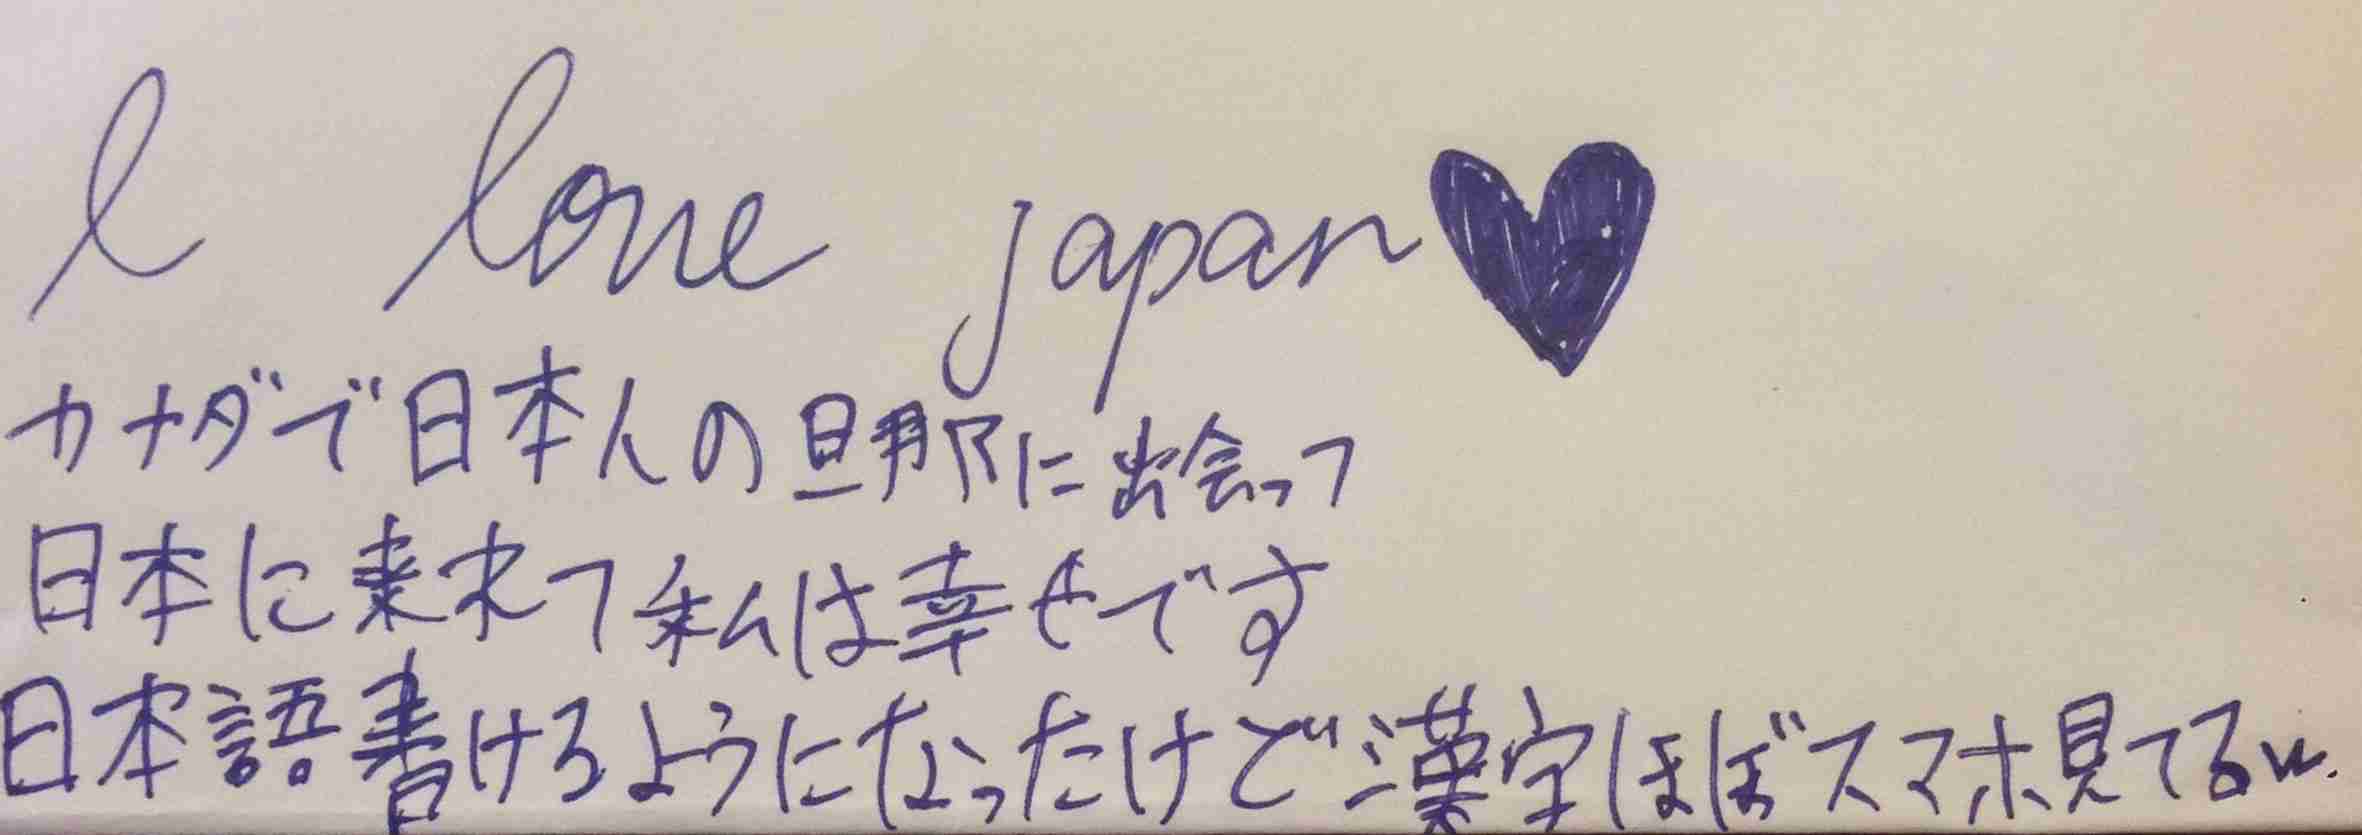 I love japan♥
カナダで日本人の旦那に出会って
日本に来れて私は幸せです
日本語書けるようになったけど漢字ほぼスマホ見てるw.